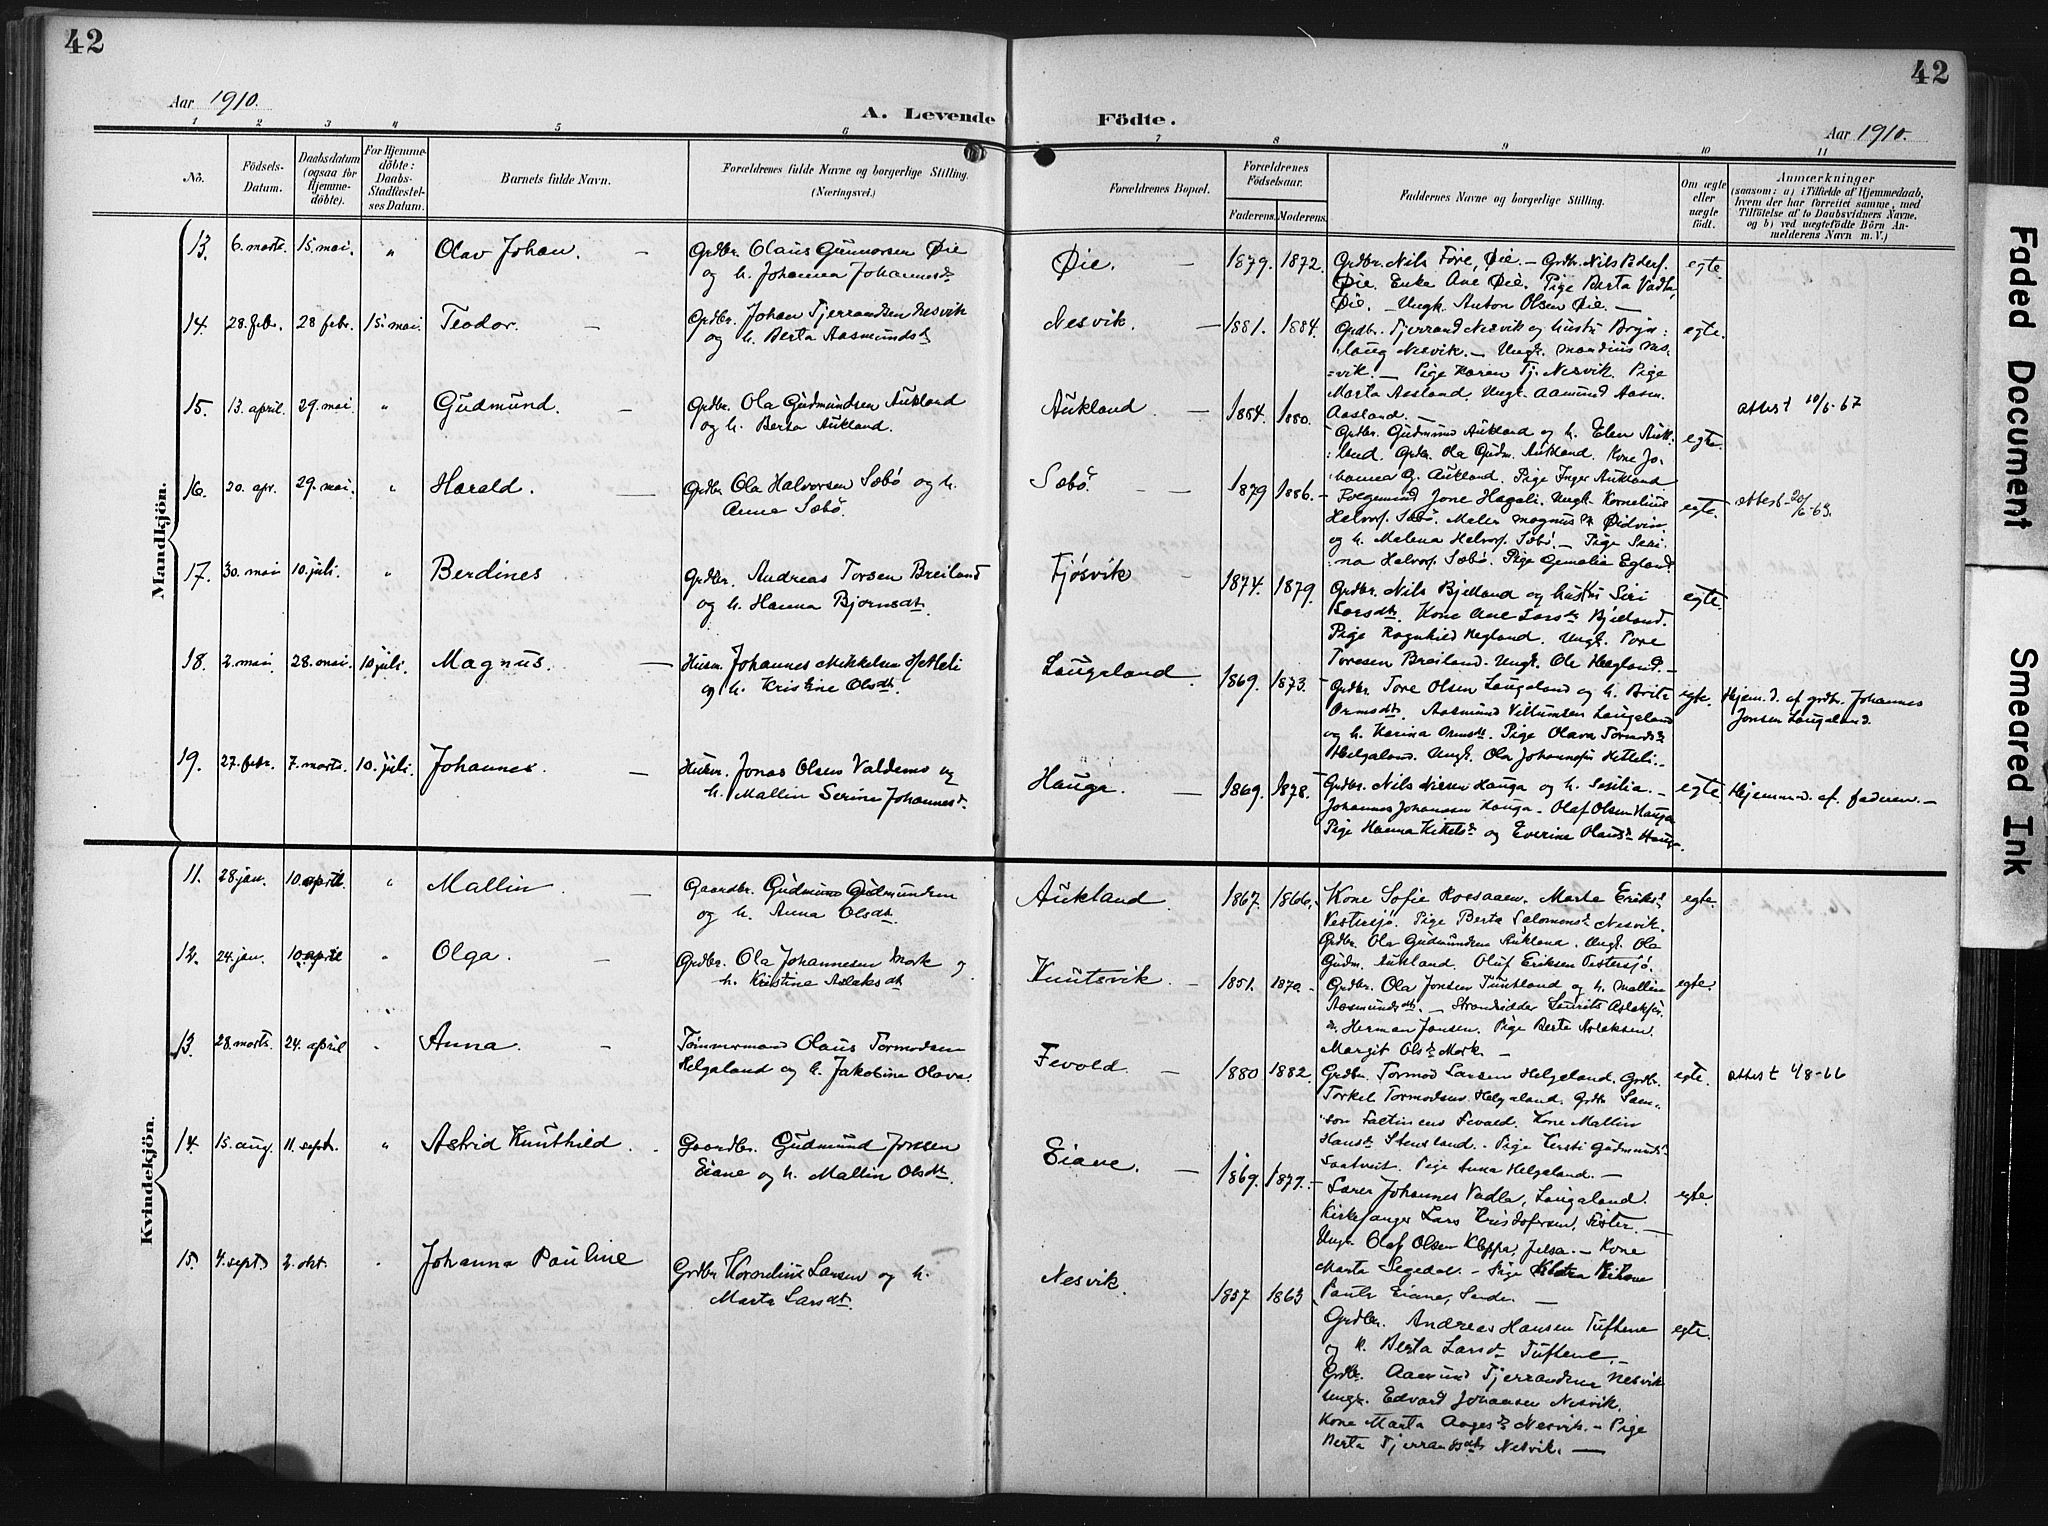 42
42
Aar 1910.
A. Levende Födte.
Aar 1910.
1 2 3 4 5 6 7 8 9 10 11
No.
Födsels-Datum.
Daabsdatum (ogsaa for Hjemmedöbte).
For Hjemmedöbte: Daabs-Stadfæstelses Datum.
Barnets fulde Navn.
Forældrenes fulde Navne og borgerlige Stilling. (Næringsvei.)
Forældrenes Bopæl.
Forældrenes Födselsaar.
Faderens. Moderens.
Faddernes Navne og borgerlige Stilling.
Om ægte eller uægte födt.
Anmærkninger
(saasom: a) i Tilfælde af Hjemmedaab, hvem der har forrettet samme, med Tilföielse af to Daabsvidners Navne. og b) ved uægtefödte Börn Anmelderens Navn m. V.)
Mandkjön.
13. 6. marts. 15. mai. " Olav Johan. — Grdbr. Olaus Gunnarsen Øie
og h. Johanna Johannesdt
Øie. — 1879. 1872. Grdbr. Nils Tore, Øie. — Grdbr. Nils Peders.
Øie. Enke Ane Øie. Pige Berta Vadla,
Øie. — Ungk. Anton Olsen Øie. —
egte.
14. 28. febr. 28 febr. 15. mai. Teodor. — Grdbr. Johan Tjerrandsen Nesvik
og h. Berta Aasmundsdt
Nesvik. — 1881. 1884. Grdbr. Tjerrand Nesvik og hustru Bryn:
laug Nesvik. — Ungk. Mandius Nes-
=vik. — Pige Karen Tj. Nesvik. Pige
Marta Aasland. Ungk. Aamund Aasm.
Aasland. —
egte.
15. 13. april. 29. mai. " Gudmund. — Grdbr. Ola Gudmundsen Aukland
og h. Berta Aukland.
Aukland. — 1884. 1880. Grdbr. Gudmund Aukland og h. Elen Auk-
:land. Grdbr. Ola Gudm. Aukland. Kone Jo-
hanna G. Aukland. Pige Inger Aukland
egte. attest 10/6-67
16. 20. apr. 29. mai. " Harald. — Grdbr. Ola Halvorsen Sæbö og h.
Anna Sæbö.
Sæbö. — 1879 1886. Jone Hagali. Ungk. Kornelius
Halvors. Sæbö. Maler Magnus
og h. Malena Halvors. Sæbö — Pige Seri-
na Halvors. Sæbö. Pige Egland.
egte. attest 20/6-63.
17. 30. mai 10. juli. " Berdines Grdbr. Andreas Torsen Breiland
og h. Hanna Bjørnsdt.
Fjøsvik — 1874. 1879. Grdbr. Nils Bjelland og hustru Siri
Larsdt. Kone Ane Larsdt Bjelland.
Pige Ragnhild Hegland. Ungk. Tore
Toresen Breiland. Ungk. Ole Hegland. —
egte.
18. 2. mai 28. mai. 10 juli. Magnus. — Husm. Johannes Mikkelsen Hetleli
og h. Kristine Olsdt.
Laugaland. 1869. 1873. Grdbr. Tore Olsen Laugaland og h. Brita
Ormsdt. Aasmund Villumsen Laugaland
og h. Karina Ormsdt. Pige Olava Tormodsdt
Helgaland. Ungk. Ola Johannesen Hetleli. —
egte. Hjem. d. af grdbr. Johannes
Jonsen Laugaland.
19. 27. febr. 7. marts. 10. juli. Johannes. — Husm. Jonas Olsen Valdemo og
h. Mallin Serine Johannesdt
Hauga. — 1869. 1878. Grdbr. Nils Nilsen Hauga og h. Sesilia. —
Johannes Johansen Hauga. — Olaf Olsen Hauga
Pige Hanna Kittelsdt og Everine Olausdt Hauga.
egte. Hjemmed. af faderen. —
Kvindekjön.
11. 28. jan. 10. april. " Mallin. — Gaardbr. Gudmund Gudmundsen
og h. Anna Olsdt.
Aukland. 1867. 1866. Kone Sofie Roesaaen. Marta Eriksdt
Vestersjø. Pige Berta Salomonsdt Nesvik.
Grdbr. Ola Gudmundsen Aukland. Ungk. Ola
Gudm. Aukland. Oluf Eriksen Vestersjö.
egte.
12. 24. jan. 10. april " Olga. — Grdbr. Ola Johannesen Mork og
h. Kristine Aslaksdt
Knutsvik. — 1851. 1870. Grdbr. Ola Jonsen Tuntland og h. Mallin
Aasmundsdt. — Strandsidder Laurits Aslaksen.
Herman Jansen. Pige Berta Aslaksen.
Margit Olsdt Mork. —
egte.
13. 28. marts. 24. april " Anna. — Tømmermand Olaus Tormodsen
Helgaland og h. Jakobine Olava.
Fevold. — 1880 1882. Grdbr. Tormod Larsen Helgeland. Grdbr.
Torkel Tormodsen Helgaland. Grdbr. Sam-
son Fevold. Kone Mallin
Hansdt Stensland. Pige Kirsti Gudmundsdt
Saatveit. Pige Anna Helgaland. —
egte. attest 4/8-66
14. 15. aug. 11. septr. " Astrid Knuthild. Gaardbr. Gudmund Jonsen
Eiane og h. Mallin Olsdt.
Eiane. — 1869. 1877. Lærer Johannes Vadla, Laugaland.
Kirkesanger Lars Kristofersen, Fister. —
Ungk. Olaf Olsen Kleppa, Jelsa. — Kone
Marta Segedal. — Pige Klara
Eiane, Sande. —
egte.
15. 4. septr 2. okt. " Johanna Pauline Grdbr. Kornelius Larsen og h.
Marta Larsdt.
Nesvik. 1857 1863 Grdbr. Andreas Hansen Tuftene
og h. Berta Larsdt Tuftene. —
Grdbr. Aamund Tjerrandsen Nesvik
Ungk. Edvard Johansen Nesvik.
Kone Marta Aagesdt Nesvik. — Pige
Berta Tjerrandsdt Nesvik. —
egte.
Faded Document
Smeared Ink